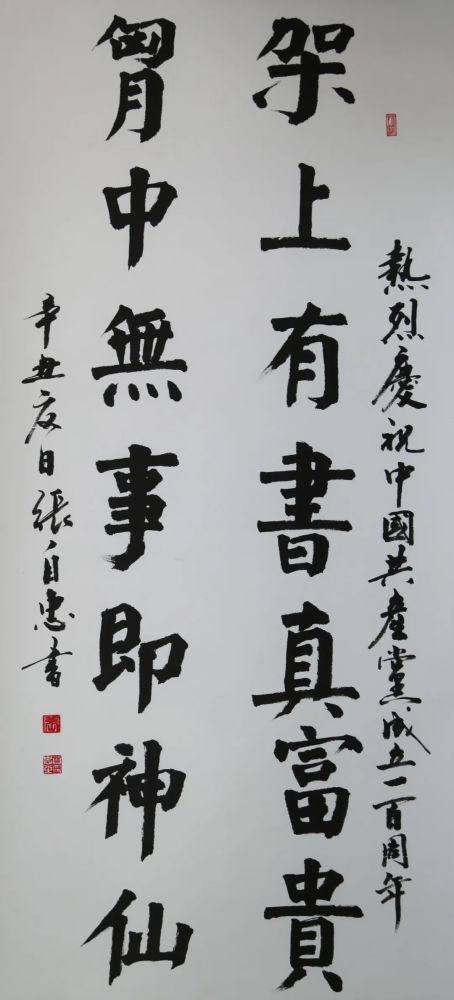 熱烈慶祝中國共產黨成立一百周年
架上有書真富貴
胷中無事即神仙
辛丑夏日張自忠書